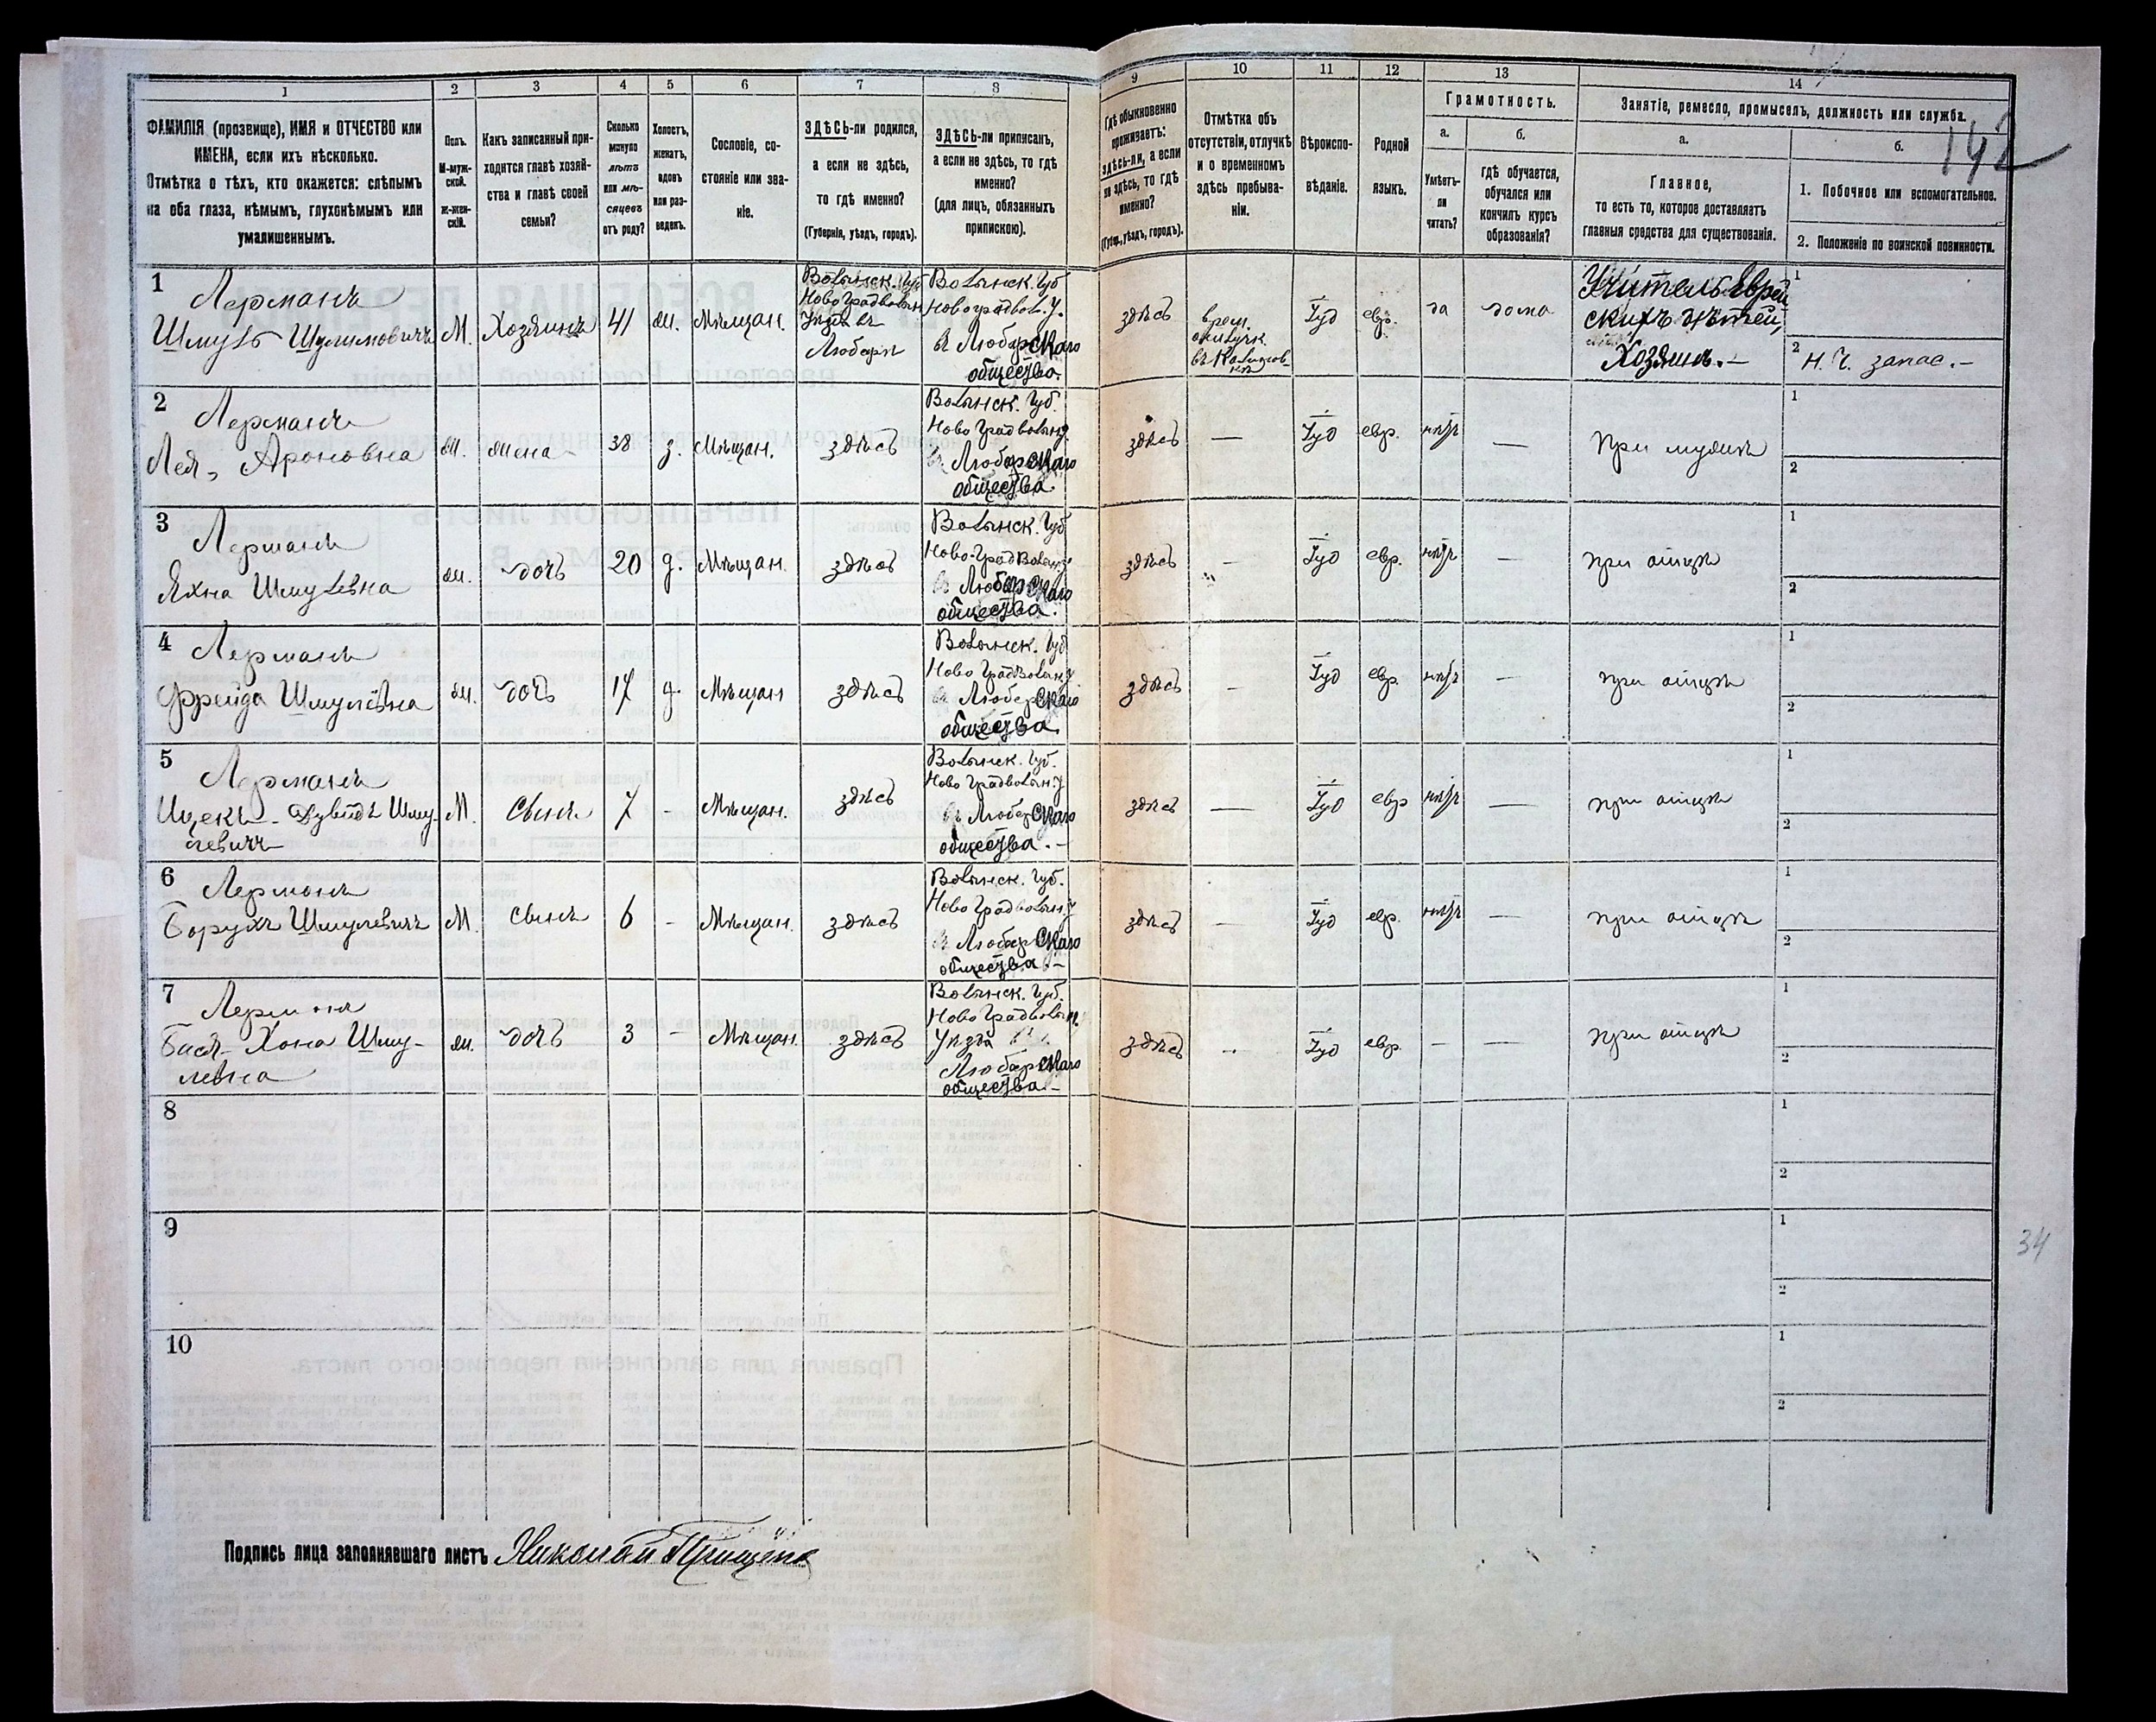 1 2 3 4 5 6 7 8 9 10 11 12 13 14
ФАМИЛІЯ (прозвище), ИМЯ и ОТЧЕСТВО или
ИМЕНА, если ихъ нѣсколько.
Отмѣтка о тѣхъ, кто окажется: слѣпымъ
на оба глаза, нѣмымъ, глухонѣмымъ или
умалишеннымъ.
Полъ.
М-муж-
ской.
ж-жен-
скій.
Какъ записанный при-
ходится главѣ хозяй-
ства и главѣ своей
семьи?
Сколько
минуло
лѣтъ
или мѣ-
сяцевъ
отъ роду?
Холостъ,
женатъ,
вдовъ
или раз-
веденъ.
Сословіе, со-
стояніе или зва-
ніе.
ЗДѢСЬ-ли родился,
а если не здѣсь,
то гдѣ именно?
(Губернія, уѣздъ, городъ).
ЗДѢСЬ-ли приписанъ,
а если не здѣсь, то гдѣ
именно?
(для лицъ, обязанныхъ
припискою).
Гдѣ обыкновенно
проживаетъ:
здѣсь-ли, а если
не здѣсь, то гдѣ
именно?
(Губер., уѣздъ, городъ).
Отмѣтка объ
отсутствіи, отлучкѣ
и о временномъ
здѣсь пребыва-
ніи.
Вѣроиспо-
вѣданіе.
Родной
языкъ.
Грамотность.
а.
Умѣетъ-
ли
читать?
б.
гдѣ обучается,
обучался или
кончилъ курсъ
образованія?
Занятіе, ремесло, промыселъ, должность или служба.
а.
Главное,
то есть то, которое доставляетъ
главныя средства для существованія.
б.
142
1. Побочное или вспомогательное.
2. Положеніе по воинской повинности.
1 Лерманъ
Шмуль Шулимовичъ
М.
Хозяинъ
41
ж.
Мѣщан.
Волынск. Губ
Новоградволын
Уѣзда въ
Любарѣ
Волынск. Губ
Новоградвол. У.
въ Любарскаго
общества.
здѣсь
врем.
отлучк.
Іуд
евр.
да
дома
Учитель Еврей
скихъ дѣтей
Хозяинъ.-
1
2 Н. Ч. запас.-
2 Лерманъ
Лея, Ароновна
ж.
жена
38
з.
Мѣщан.
здѣсь
Волынск. Губ.
Новоградволын У
въ Любарскаго
общества.
здѣсь
—
Іуд
евр.
нѣтъ
—
при мужѣ
1
2
3 Лерманъ
Яхна Шмулевна
ж.
дочь
20
д.
Мѣщан.
здѣсь
Волынск. Губ
Ново-Градволын У
въ Любарскаго
общества.
здѣсь
-
Іуд
евр.
нѣтъ
—
при отцѣ
1
2
4 Лерманъ
Фрейда Шмулевна
ж.
дочь
17
д.
Мѣщан
здѣсь
Волынск. Губ
Ново Градволын У
въ Любарскаго
общества
здѣсь
-
Іуд
евр.
нѣтъ
—
при отцѣ
1
2
5 Лерманъ
Ицекъ-Дувидъ Шму-
левичъ
М.
Сынъ
7
-
Мѣщан.
здѣсь
Волынск. Губ.
Ново Градволын. У
въ Любарскаго
общества.-
здѣсь
—
Іуд
евр
нѣтъ
—
при отцѣ
1
2
6 Лерманъ
Борухъ Шмулевичъ
М.
Сынъ
6
-
Мѣщан.
здѣсь
Волынск. Губ.
Ново Градволын. У
въ Любарскаго
общества-
здѣсь
-
Іуд
евр.
нѣтъ
—
при отцѣ
1
2
7 Лерманъ
Бася-Хона Шму-
левна
ж.
дочь
3
-
Мѣщан.
здѣсь
Волынск. Губ.
Ново Градволын.
Уѣзда
Любарскаго
общества.-
здѣсь
-
Іуд
евр.
-
—
при отцѣ
1
2
8
1
2
9
1
2
34
10
1
2
Подпись лица заполнявшаго листъ Николай